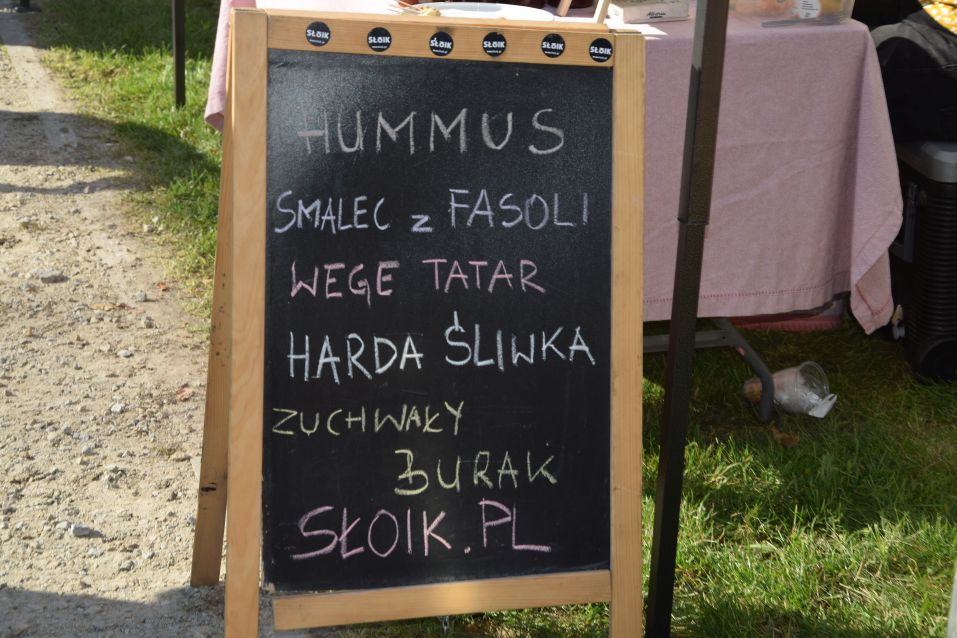 SŁOIK SŁOIK SŁOIK SŁOIK SŁOIK SŁOIK
HUMMUS
SMALEC z FASOLI
WEGE TATAR
HARDA ŚLIWKA
ZUCHWAŁY
BURAK
SŁOIK.PL